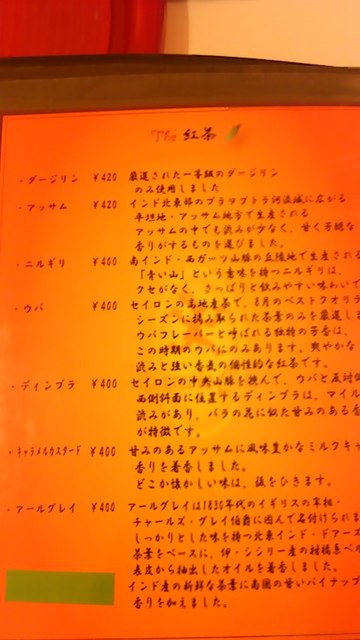 Thé 紅茶
・ダージリン ¥420 厳選された一等級のダージリン
のみ使用しました
・アッサム ¥420 インド北東部のブラマプトラ河流域に広がる
平坦地・アッサム地方で生産される
アッサムの中でも渋みが少なく、甘く芳醇な
香りがするものを選びました。
・ニルギリ ¥400 南インド・西ガーツ山脈の丘陵地で生産され
「青い山」という意味を持つニルギリは、
クセがなく、さっぱりと飲みやすい味わいで
・ウバ ¥400 セイロンの高地産茶で、8月のベストクオリ
シーズンに摘み取られた茶葉のみを厳選し
ウバフレーバーと呼ばれる独特の芳香は、
この時期のウバにのみあります。爽やかな
渋みと強い香気の個性的な紅茶です。
・ディンブラ ¥400 セイロンの中央山脈を挟んで、ウバと反対側
西側斜面に位置するディンブラは、マイル
渋みがあり、バラの花に似た甘みのある香
が特徴です。
・キャラメルカスタード ¥400 甘みのあるアッサムに風味豊かなミルクキャ
香りを着香しました。
どこか懐かしい味は、後をひきます。
・アールグレイ ¥400 アールグレイは1830年代のイギリスの宰相・
チャールズ・グレイ伯爵に因んで名付けられま
しっかりとした味を持つ北東インド・ドアーズ
茶葉をベースに、伊・シシリー産の柑橘系ベル
表皮から抽出したオイルを着香しました。
インド産の新鮮な茶葉に南国の甘いパイナップ
香りを加えました。